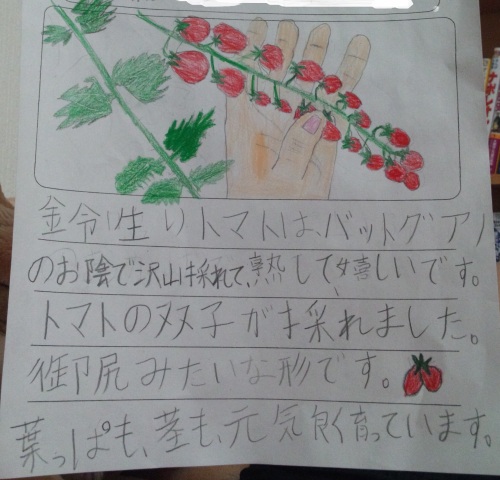 鈴生りトマトは、バットグアノ
のお陰で沢山採れて、熟して、嬉しいです。
トマトの双子が採れました。
御尻みたいな形です。
葉っぱも、茎も、元気良く育っています。